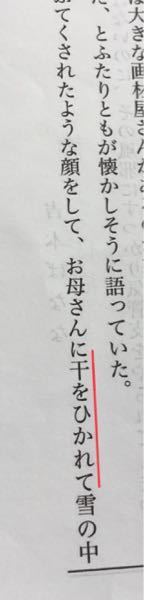 は大きな画材屋さんが
た、とふたりともが懐かしそうに語っていた。
てくされたような顔をして、お母さんに干をひかれて雪の中